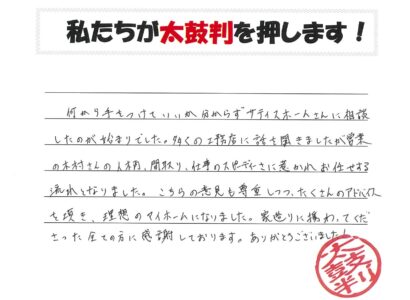 私たちが太鼓判を押します！
何から手をつけていいか分からずサティスホームさんに相談
したのが始まりでした。多くの工務店に話を聞きましたが営業
の木村さんの人柄、間取り、仕事のスピーディーさに惹かれお任せする
流れとなりました。こちらの意見も尊重しつつ、たくさんのアドバイス
を頂き、理想のマイホームになりました。家造りに携わってくだ
さった全ての方に感謝しております。ありがとうございました！
太鼓判